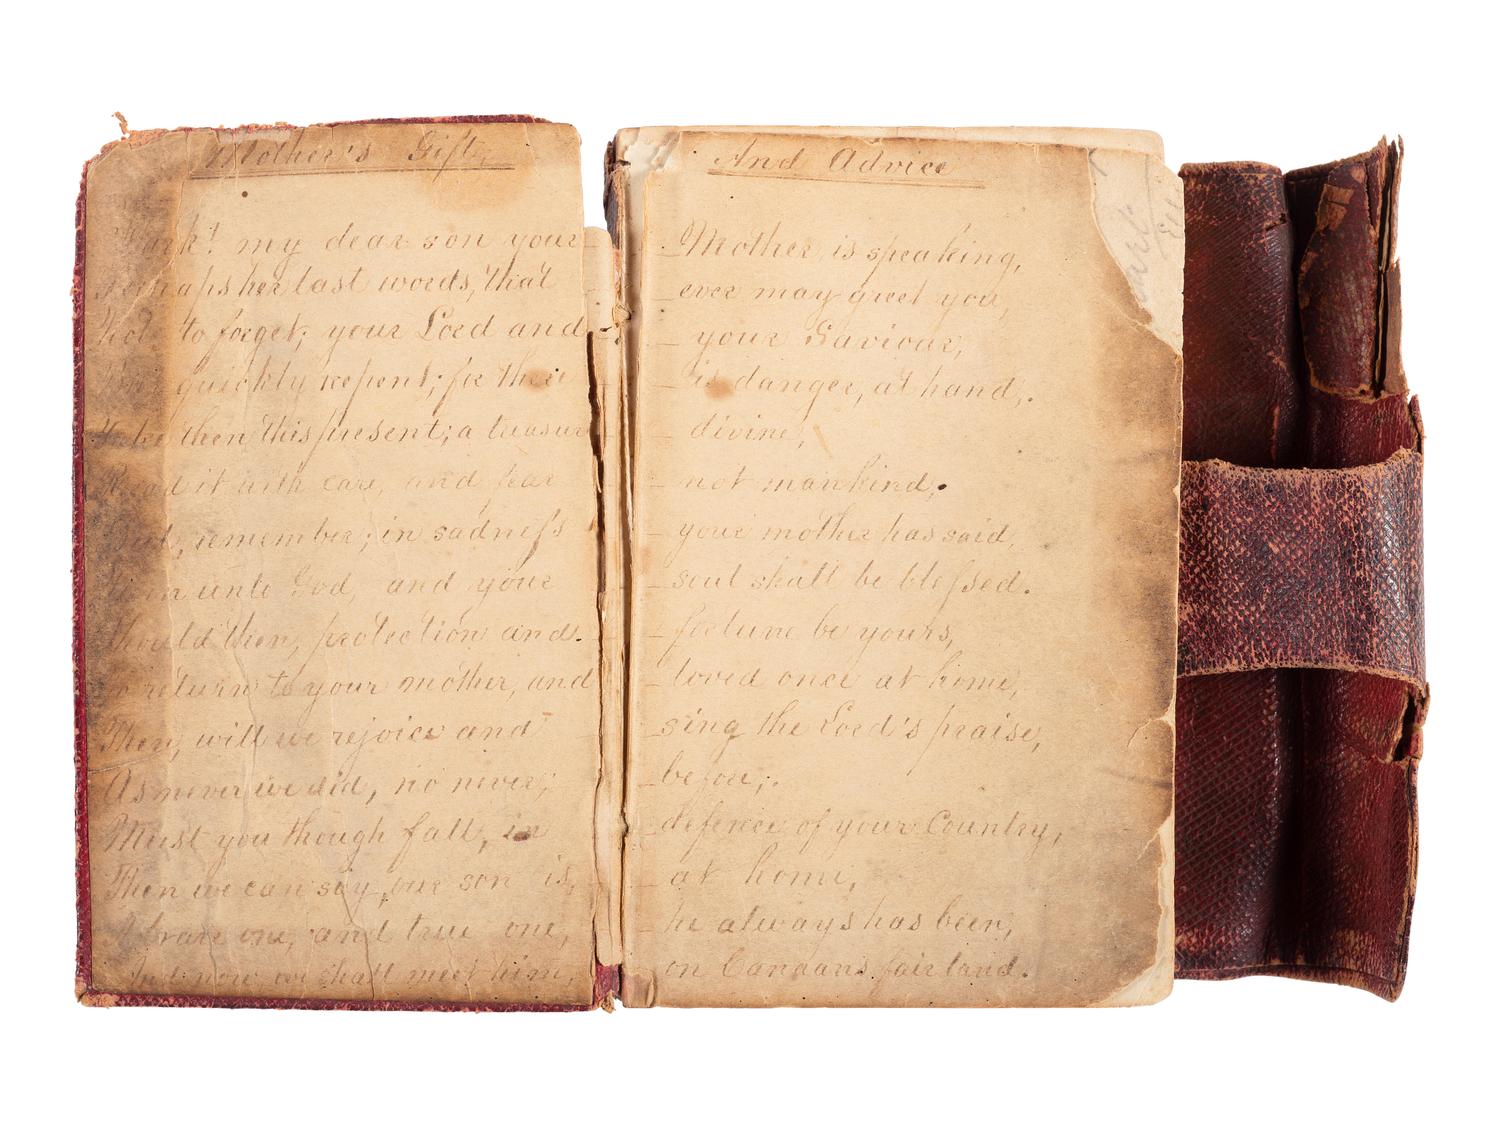 Mother's Gift
Hark! my dear son your
Perhaps her last words, that
Not to forget; your Lord and
quickly repent; for their
Take then this present; a treasure
Read it with care, and fear
But, remember; in sadneſs
Turn unto God, and your
Should then, protection and.
To return to your mother, and
Then, will we rejoice and
As never we did, no never;
Must you though fall, in
Then we can say, our son is,
A brave one, and true one,
And now we shall meet him,
And Advice
Mother is speaking,
ever may greet you,
your Saviour,
is danger, at hand,.
divine,
not mankind,.
your mother has said,
soul shall be bleſsed.
fortune be yours,
loved once at home,
sing the Lord's praise,
before,.
defence of your Country,
at home,
he always has been,
on Canaans fair land.